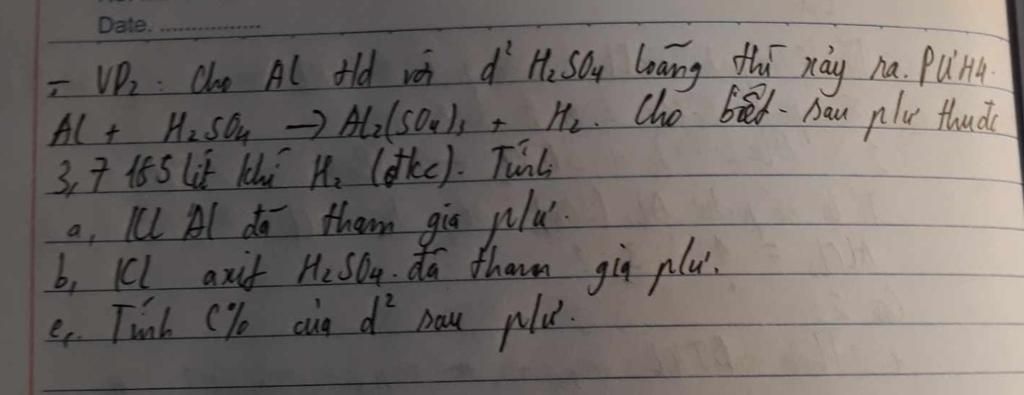 Date. ................
- VD₂: Cho Al td với d² H₂SO₄ loãng thì xảy ra. PƯHH.
Al + H₂SO₄ → Al₂(SO₄)₃ + H₂. Cho biết sau phư thuđc
3,7185 lít khí H₂ (đkc). Tính
a, Kl Al đã tham gia phư.
b, Kl axit H₂SO₄ đã tham gia phư.
c, Tính C% của d² sau phư.